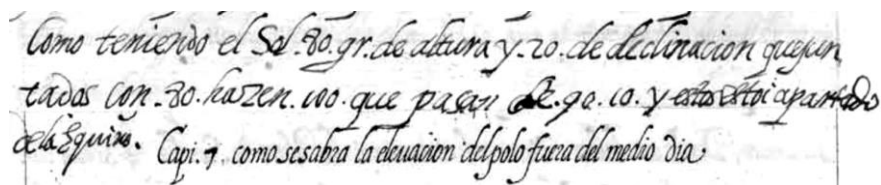 Como teniendo el Sol .80. gr. de altura y .20. de declinacion que jun
tados con .80. hazen .100. que pasan de .90. 10. y estos estoi apartado
de la Equino. Capi. 7. como se sabra la eleuacion del polo fuera del medio dia